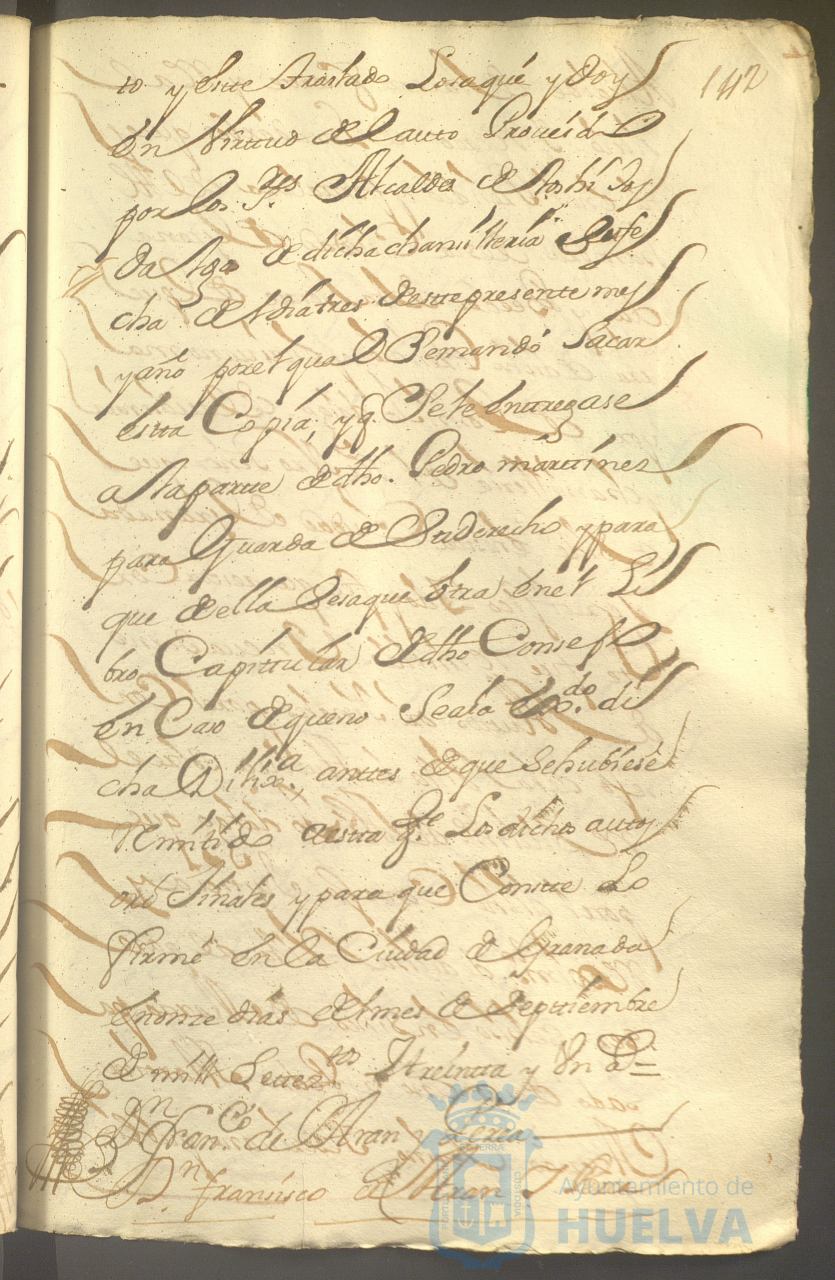 142
to y este traslado Lo saqué y doy
en Virtud del auto Proueido
por los S.res Alcaldes de los hi Jos
da Lgo de dicha chanzilleria Su fe
cha del dia tres deste presente mes
y año por el qual Se mandó Sacar
esta Copia, y q. Se le enttregase
a la parte de dho. Pedro marttines
para Guarda de Su derecho y para
que della Sesaque otra en el Li
bro Capittular de dho Consejo
en Caso de que no Sea la Sa.do di
cha Dilix.a anttes de que Se hubiese
Remitido a esta Q.e Los dichos autos
orijinales y para que Constte Lo
firmé en la Ciudad de Granada
en onze dias del mes de Septtiembre
de mill Settez.tos Y treintta y Un a.s=
D.n Fran.co de Aran
D.n fransisco de Aran
Ayuntamiento de
HUELVA